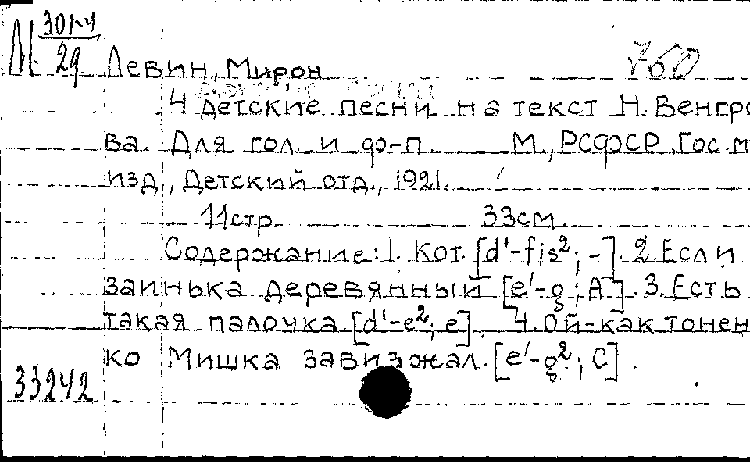 М 301-4
29
Левин, Мирон
760
4 детские песни на текст Н. Венгро
ва. Для гол. и ф-п. М., РСФСР. Гос. м
изд., Детский отд., 1921.
11стр. 33см.
Содержание: 1. Кот. [d'-fis²; -]. 2. Если
заинька деревянный [e'-g; A]. 3. Есть
такая палочка. [d'-e²; e]. 4. Ой-как тонен
ко Мишка завизжал. [e'-g²; C].
33242